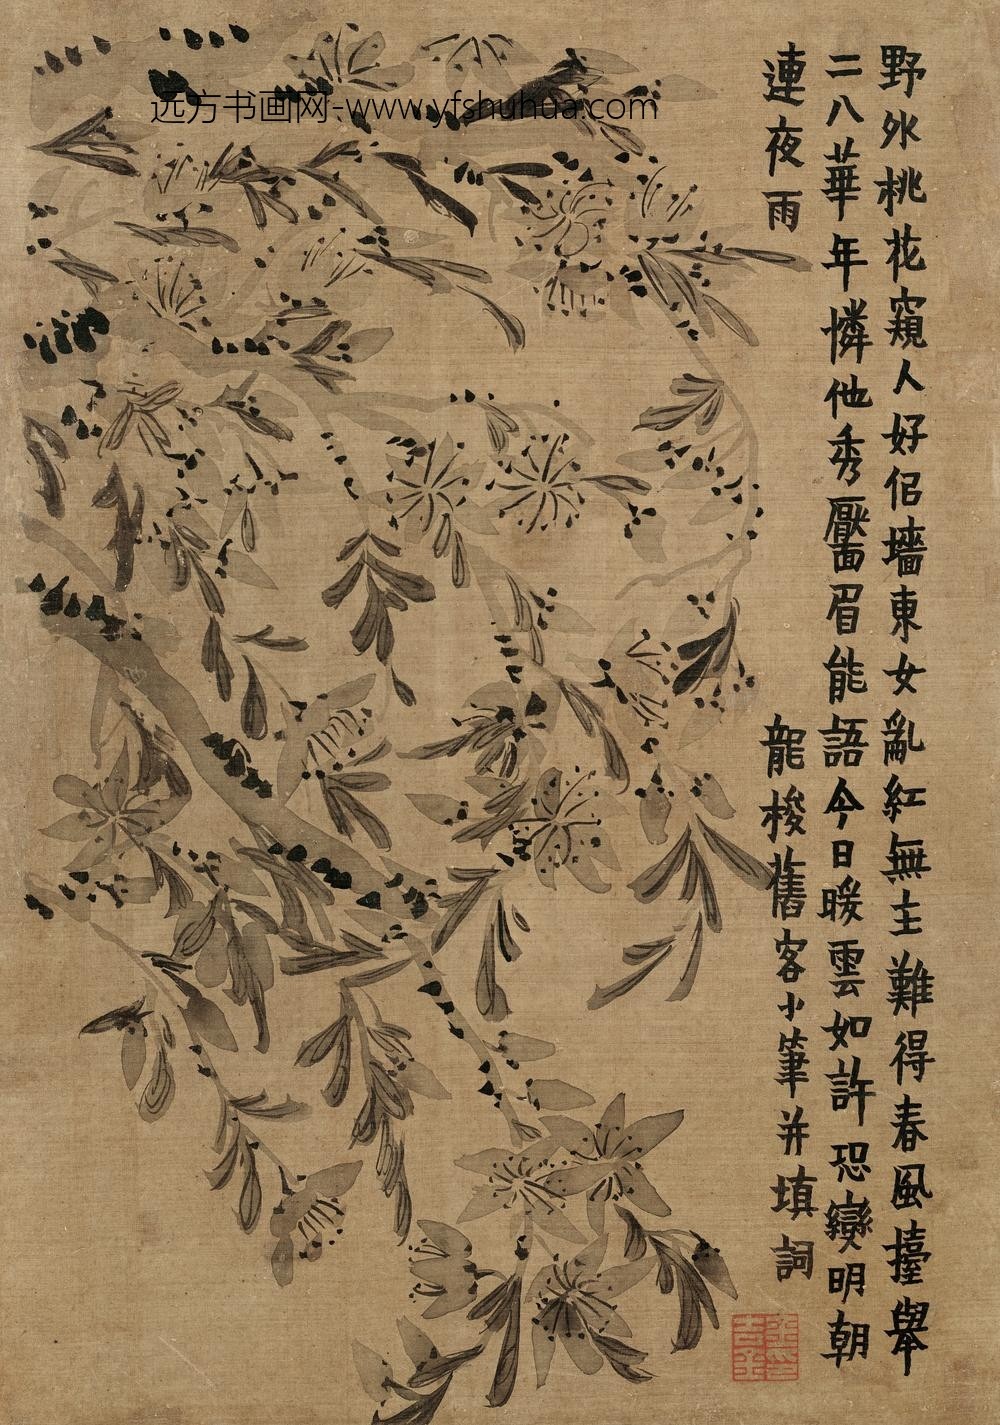 远方书画网-www.yfshuhua.com
野外桃花窺人好侣墻東女亂紅無主難得春風擡舉
二八華年憐他秀靨眉能語今日暖雲如許恐變明朝
連夜雨
龍梭舊客小筆并填詞